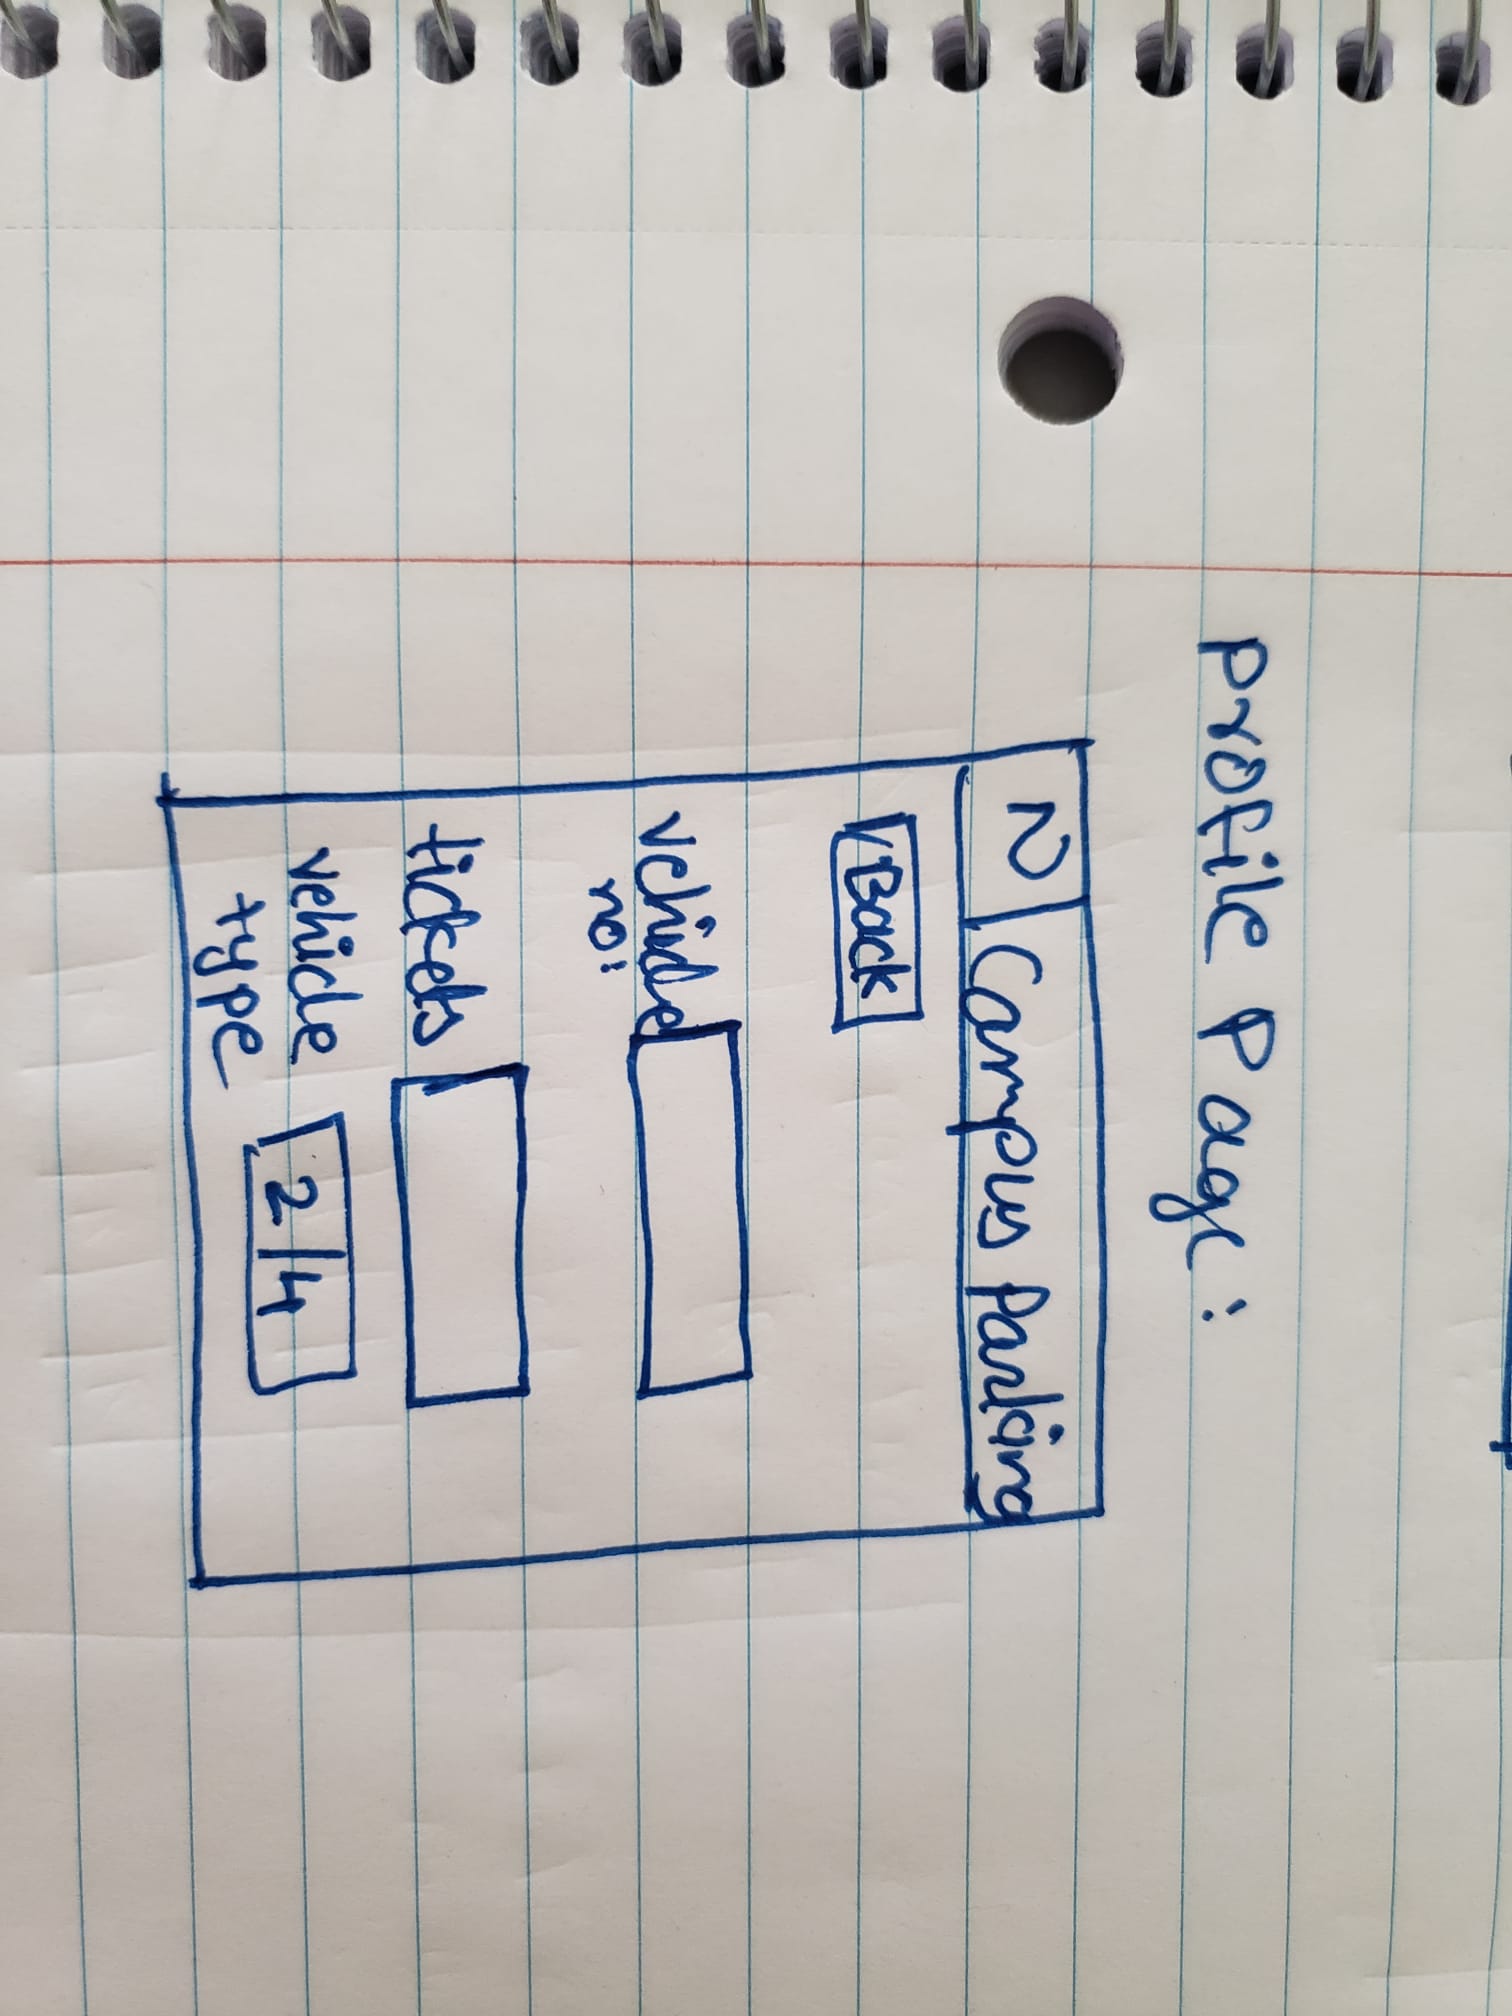 Profile Page:
N Campus Parking
Back
vehicle
no:
tickets
vehicle 2/4
type